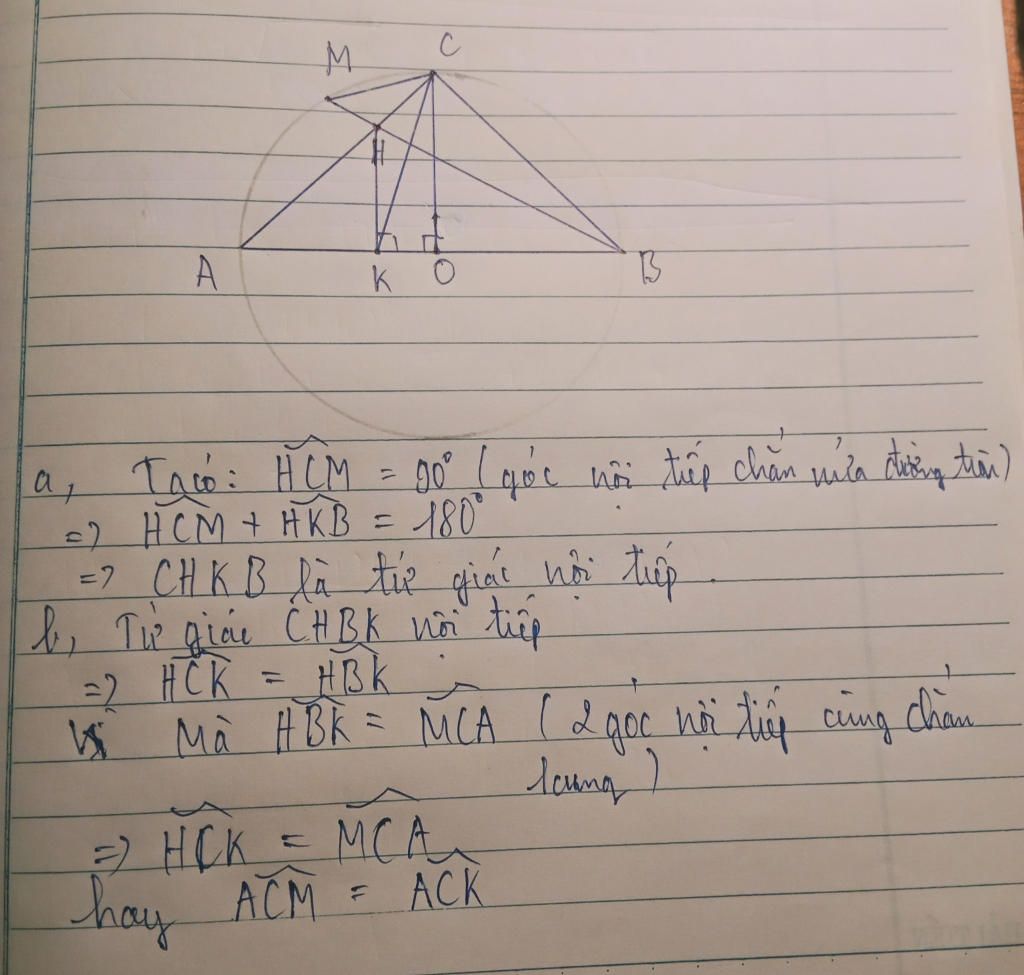 M
C
H
A
K
O
B
a, Ta có: HCM = 90° (góc nội tiếp chắn nửa đường tròn)
=> HCM + HKB = 180°
=> CHKB là tứ giác nội tiếp.
b, Tứ giác CHBK nội tiếp
=> HCK = HBK
Mà HBK = MCA (2 góc nội tiếp cùng chắn
1 cung)
=> HCK = MCA
hay ACM = ACK